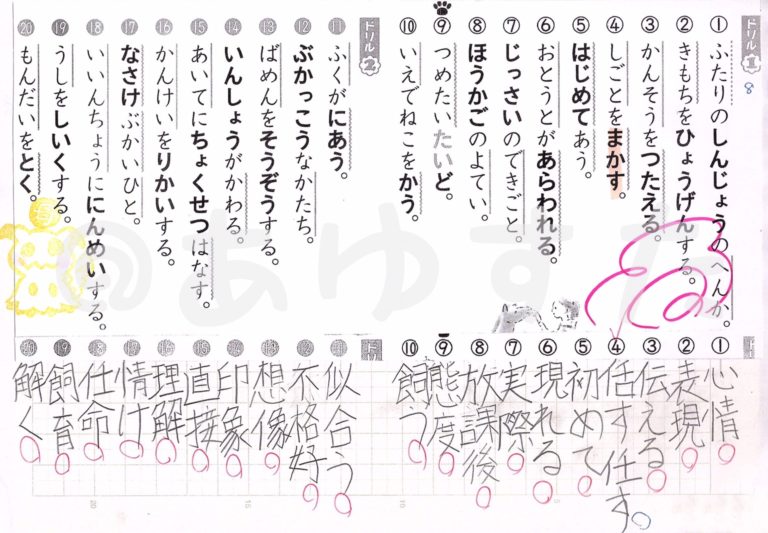 ドリル1
8
① ふたりのしんじょうのへんか。
② きもちをひょうげんする。
③ かんそうをつたえる。
④ しごとをまかす。
⑤ はじめてあう。
⑥ おとうとがあらわれる。
⑦ じっさいのできごと。
⑧ ほうかごのよてい。
⑨ つめたいたいど。
⑩ いえでねこをかう。
ドリル2
⑪ ふくがにあう。
⑫ ぶかっこうなかたち。
⑬ ばめんをそうぞうする。
⑭ いんしょうがかわる。
⑮ あいてにちょくせつはなす。
⑯ かんけいをりかいする。
⑰ なさけぶかいひと。
⑱ いいんちょうににんめいする。
⑲ うしをしいくする。
⑳ もんだいをとく。
① 心情
② 表現
③ 伝える
④ 任す 任す
⑤ 初めて
⑥ 現れる
⑦ 実際
⑧ 放課後
⑨ 態度
⑩ 飼う
⑪ 似合う
⑫ 不格好
⑬ 想像
⑭ 印象
⑮ 直接
⑯ 理解
⑰ 情け
⑱ 任命
⑲ 飼育
⑳ 解く
10
15
20
@あゆすた